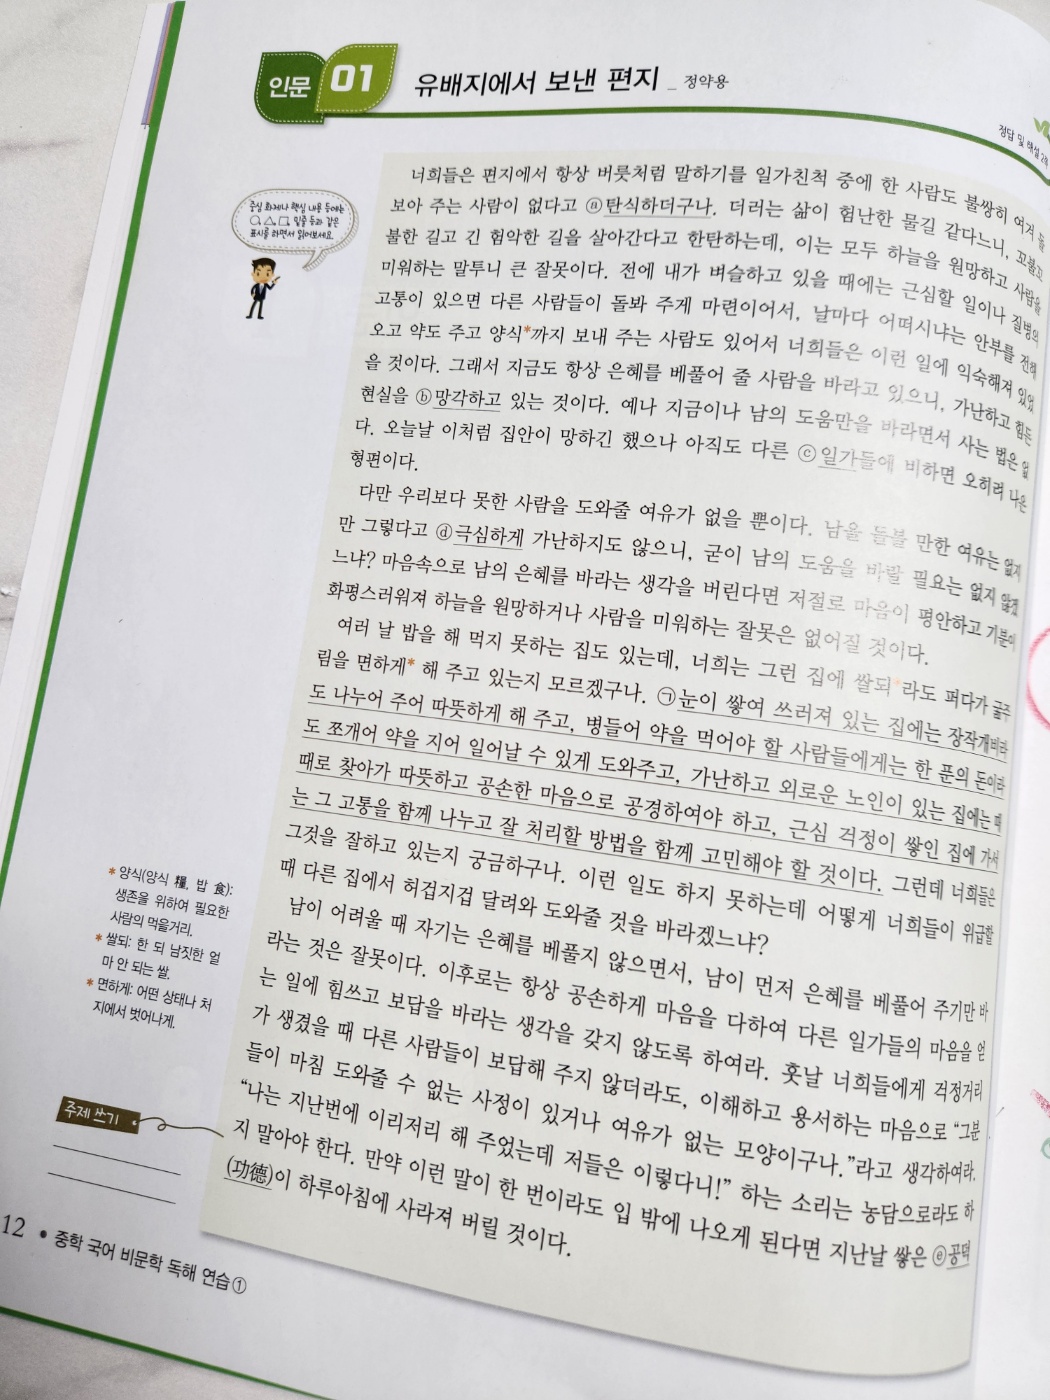 인문 01 유배지에서 보낸 편지 _ 정약용
정답 및 해설 2쪽
중심 화제나 핵심 내용 등에는
○, △, □, 밑줄 등과 같은
표시를 하면서 읽어보세요.
너희들은 편지에서 항상 버릇처럼 말하기를 일가친척 중에 한 사람도 불쌍히 여겨 돌
보아 주는 사람이 없다고 ⓐ탄식하더구나. 더러는 삶이 험난한 물길 같다느니, 꼬불꼬
불한 길고 긴 험악한 길을 살아간다고 한탄하는데, 이는 모두 하늘을 원망하고 사람을
미워하는 말투니 큰 잘못이다. 전에 내가 벼슬하고 있을 때에는 근심할 일이나 질병의
고통이 있으면 다른 사람들이 돌봐 주게 마련이어서, 날마다 어떠시냐는 안부를 전해
오고 약도 주고 양식*까지 보내 주는 사람도 있어서 너희들은 이런 일에 익숙해져 있었
을 것이다. 그래서 지금도 항상 은혜를 베풀어 줄 사람을 바라고 있으니, 가난하고 힘든
현실을 ⓑ망각하고 있는 것이다. 예나 지금이나 남의 도움만을 바라면서 사는 법은 없
다. 오늘날 이처럼 집안이 망하긴 했으나 아직도 다른 ⓒ일가들에 비하면 오히려 나은
형편이다.
다만 우리보다 못한 사람을 도와줄 여유가 없을 뿐이다. 남을 돌볼 만한 여유는 없지
만 그렇다고 ⓓ극심하게 가난하지도 않으니, 굳이 남의 도움을 바랄 필요는 없지 않겠
느냐? 마음속으로 남의 은혜를 바라는 생각을 버린다면 저절로 마음이 평안하고 기분이
화평스러워져 하늘을 원망하거나 사람을 미워하는 잘못은 없어질 것이다.
여러 날 밥을 해 먹지 못하는 집도 있는데, 너희는 그런 집에 쌀되*라도 퍼다가 굶주
림을 면하게* 해 주고 있는지 모르겠구나. ㉠눈이 쌓여 쓰러져 있는 집에는 장작개비라
도 나누어 주어 따뜻하게 해 주고, 병들어 약을 먹어야 할 사람들에게는 한 푼의 돈이라
도 쪼개어 약을 지어 일어날 수 있게 도와주고, 가난하고 외로운 노인이 있는 집에는 때
때로 찾아가 따뜻하고 공손한 마음으로 공경하여야 하고, 근심 걱정이 쌓인 집에 가서
는 그 고통을 함께 나누고 잘 처리할 방법을 함께 고민해야 할 것이다. 그런데 너희들은
그것을 잘하고 있는지 궁금하구나. 이런 일도 하지 못하는데 어떻게 너희들이 위급할
때 다른 집에서 허겁지겁 달려와 도와줄 것을 바라겠느냐?
남이 어려울 때 자기는 은혜를 베풀지 않으면서, 남이 먼저 은혜를 베풀어 주기만 바
라는 것은 잘못이다. 이후로는 항상 공손하게 마음을 다하여 다른 일가들의 마음을 얻
는 일에 힘쓰고 보답을 바라는 생각을 갖지 않도록 하여라. 훗날 너희들에게 걱정거리
가 생겼을 때 다른 사람들이 보답해 주지 않더라도, 이해하고 용서하는 마음으로 “그분
들이 마침 도와줄 수 없는 사정이 있거나 여유가 없는 모양이구나.”라고 생각하여라.
“나는 지난번에 이리저리 해 주었는데 저들은 이렇다니!” 하는 소리는 농담으로라도 하
지 말아야 한다. 만약 이런 말이 한 번이라도 입 밖에 나오게 된다면 지난날 쌓은 ⓔ공덕
(功德)이 하루아침에 사라져 버릴 것이다.
* 양식(양식 糧, 밥 食):
생존을 위하여 필요한
사람의 먹을거리.
* 쌀되: 한 되 남짓한 얼
마 안 되는 쌀.
* 면하게: 어떤 상태나 처
지에서 벗어나게.
주제 쓰기
12 • 중학 국어 비문학 독해 연습①